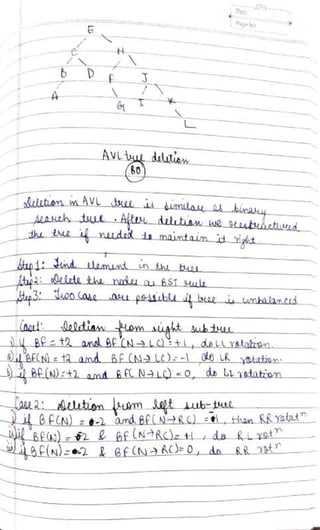 Date
Page No
E
C H
B D F J
A G I K
L
AVL tree deletion
80
Deletion in AVL tree is similar as binary
search tree. After deletion we restructured
the tree if needed to maintain it right
Step 1: Find element in the tree
Step 2: Delete the nodes as BST rule
Step 3: Two case are possible if tree is unbalanced
Case 1: Deletion from right sub tree
i) if BF = +2 and BF (N→LC) = +1, do LL rotation.
ii) if BF(N) = +2 and BF (N→LC) = -1 do LR rotation.
if BF(N) = +2 and BF(N→LC) = 0, do LL rotation
Case 2: Deletion from left sub-tree
i) if BF(N) = -2 and BF(N→RC) = -1, then RR rotatⁿ
ii) if BF(N) = -2 & BF(N→RC) = +1, do RL rotⁿ
iii) if BF(N) = -2 & BF(N→RC) = 0, do RR rotⁿ